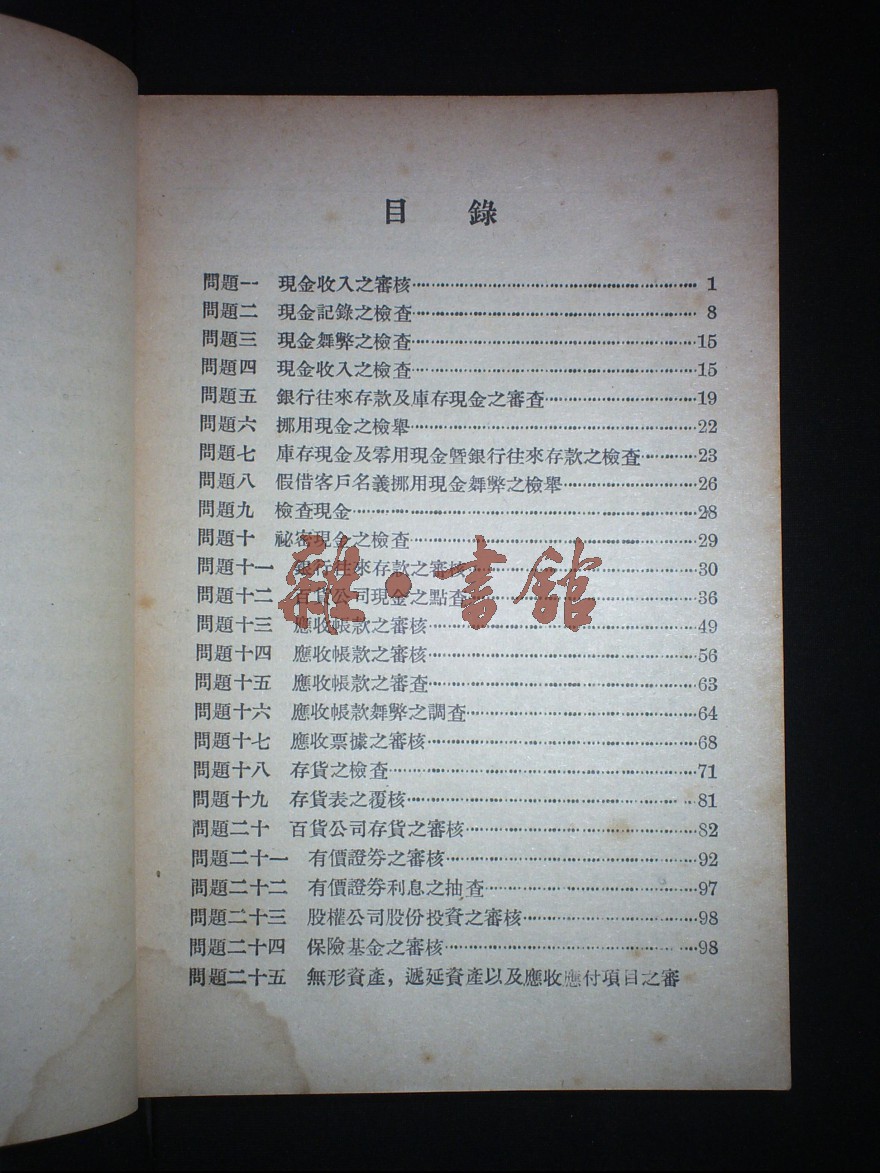 目 錄
問題一 現金收入之審核……1
問題二 現金記錄之檢查……8
問題三 現金舞弊之檢查……15
問題四 現金收入之檢查……15
問題五 銀行往來存款及庫存現金之審查……19
問題六 挪用現金之檢舉……22
問題七 庫存現金及零用現金曁銀行往來存款之檢查……23
問題八 假借客戶名義挪用現金舞弊之檢舉……26
問題九 檢查現金……28
問題十 祕密現金之檢查……29
問題十一 銀行往來存款之審核……30
問題十二 百貨公司現金之點查……36
雜·書館
問題十三 應收帳款之審核……49
問題十四 應收帳款之審核……56
問題十五 應收帳款之審查……63
問題十六 應收帳款舞弊之調查……64
問題十七 應收票據之審核……68
問題十八 存貨之檢查……71
問題十九 存貨表之覆核……81
問題二十 百貨公司存貨之審核……82
問題二十一 有價證券之審核……92
問題二十二 有價證券利息之抽查……97
問題二十三 股權公司股份投資之審核……98
問題二十四 保險基金之審核……98
問題二十五 無形資產，遞延資產以及應收應付項目之審